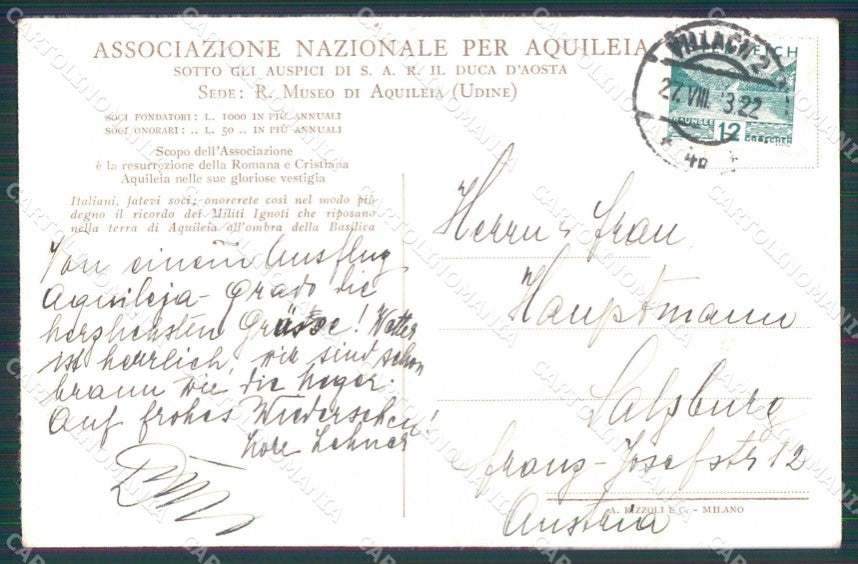 ASSOCIAZIONE NAZIONALE PER AQUILEIA
SOTTO GLI AUSPICI DI S. A. R. IL DUCA D'AOSTA
SEDE: R. MUSEO DI AQUILEIA (UDINE)
SOCI FONDATORI: L. 1000 IN PIÙ ANNUALI
SOCI ONORARI: .. L. 50 .. IN PIÙ ANNUALI
Scopo dell'Associazione
è la resurrezione della Romana e Cristiana
Aquileia nelle sue gloriose vestigia
Italiani, fatevi soci; onorerete così nel modo più
degno il ricordo dei Militi Ignoti che riposano
nella terra di Aquileia all'ombra della Basilica
Von einem Ausflug
Aquileja-Grado die
herzlichsten Grüsse! Wetter
ist herrlich, wir sind schon
braun wie die Neger.
Auf frohes Wiedersehen!
Lehner
VILLACH 2
27. VIII. 322
12
GROSCHEN
Herrn u. Frau
Hauptmann
Salzburg
Franz-Josefstr 12
Austria
A. RIZZOLI & C. - MILANO
CARTOLINOMANIA